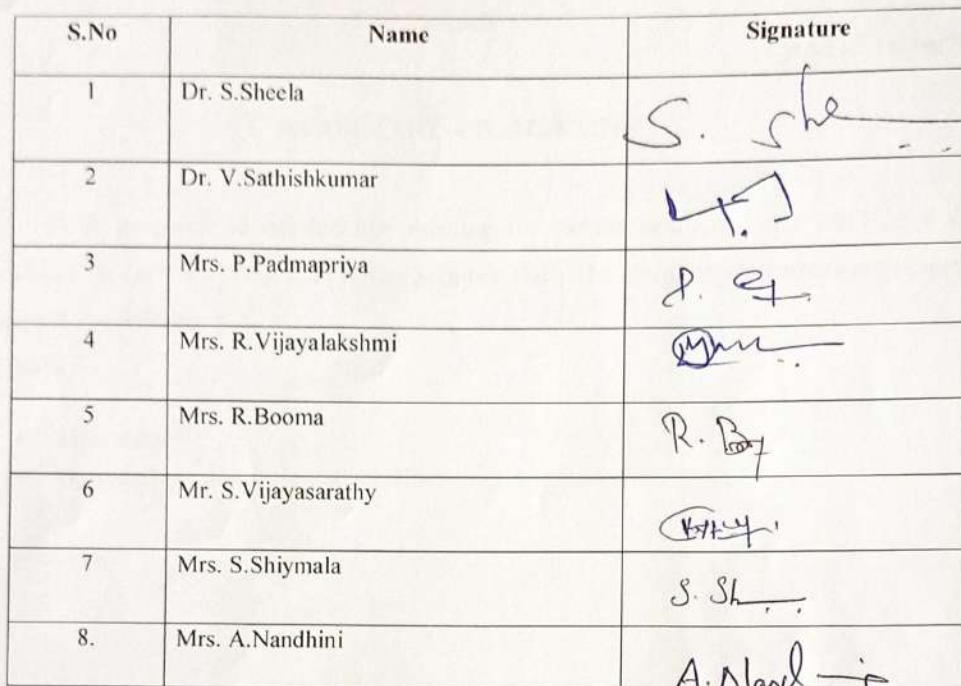 S.No Name Signature
1 Dr. S.Sheela S. She
2 Dr. V.Sathishkumar
3 Mrs. P.Padmapriya P.
4 Mrs. R.Vijayalakshmi
5 Mrs. R.Booma R.
6 Mr. S.Vijayasarathy
7 Mrs. S.Shiymala S. Sh
8. Mrs. A.Nandhini A. Nand